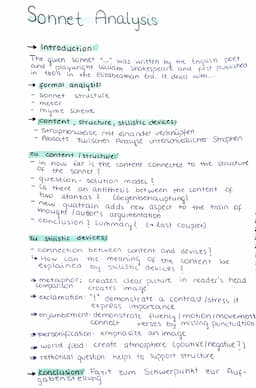 Sonnet Analysis
→ introduction:
The given sonnet "..." was written by the English poet
and playwright William Shakespeare and first published
in 1609 in the Elizabethan Era. It deals with...
→ formal analysis:
- sonnet structure
- meter
- rhyme scheme
→ content, structure, stilistic devices:
- Strophenweise mit einander verknüpfen
- Absatz zwischen Analyse unterschiedlicher Strophen
zu content / structure:
- in how far is the content connected to the structure
of the sonnet?
- question - solution model?
- is there an antithesis between the content of
two stanzas? (Gegenbehauptung)
- new quatrain adds new aspect to the train of
thought / autor's argumentation
- conclusion? summary? (→ last couplet)
zu stilistic devices:
- connection between content and devices?
↳ How can the meaning of the content be
explained by stilistic devices?
→ metaphor: creates clear picture in reader's head
comparison creates image
→ exclamation: "!" demonstrate a contrast / stress it
express importance
→ enjambement: demonstrate fluency / motion / movement
connect verses by missing punctuation
→ personification: emphasize an image
→ world food: create atmosphere (positive / negative?)
→ rethorical question: helps to support structure
→ conclusion: Fazit zum Schwerpunkt zur Auf-
gabenstellung